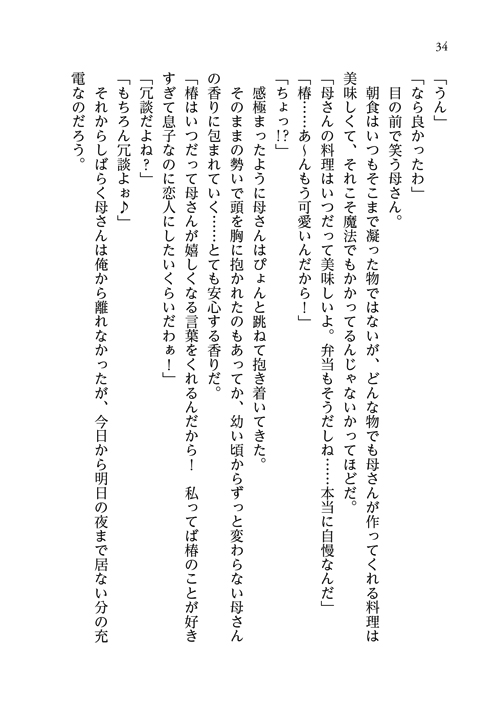 34
「うん」
「なら良かったわ」
　目の前で笑う母さん。
　朝食はいつもそこまで凝った物ではないが、どんな物でも母さんが作ってくれる料理は
美味しくて、それこそ魔法でもかかってるんじゃないかってほどだ。
「母さんの料理はいつだって美味しいよ。弁当もそうだしね……本当に自慢なんだ」
「椿……あ～んもう可愛いんだから！」
「ちょっ!?」
　感極まったように母さんはぴょんと跳ねて抱き着いてきた。
　そのままの勢いで頭を胸に抱かれたのもあってか、幼い頃からずっと変わらない母さん
の香りに包まれていく……とても安心する香りだ。
「椿はいつだって母さんが嬉しくなる言葉をくれるんだから！　私ってば椿のことが好き
すぎて息子なのに恋人にしたいくらいだわぁ！」
「冗談だよね？」
「もちろん冗談よぉ♪」
　それからしばらく母さんは俺から離れなかったが、今日から明日の夜まで居ない分の充
電なのだろう。